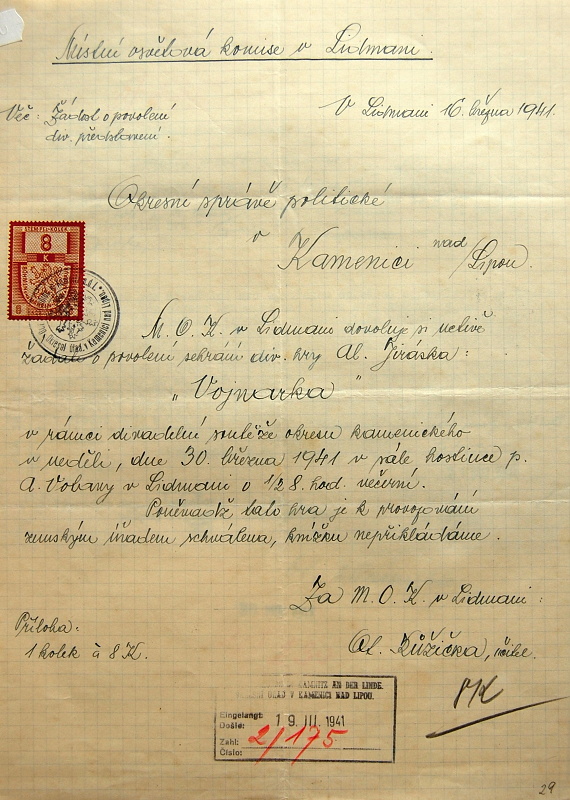 Místní osvětová komise v Lidmani.
Věc: Žádost o povolení
div. představení.
V Lidmani 16. března 1941.
Okresní správě politické
v
Kamenici nad Lipou.
STEMPEL-KOLEK
8
K
M. O. K. v Lidmani dovoluje si uctivě
žádati o povolení sehrání div. hry Al. Jiráska:
„Vojnarka"
v rámci divadelní soutěže okresu kamenického
v neděli, dne 30. března 1941 v sále hostince p.
A. Vobavy v Lidmani o 1/2 8. hod. večerní.
Poněvadž tato hra je k provozování
zemským úřadem schválena, knížku nepřikládáme.
Za M. O. K. v Lidmani:
Příloha:
1 kolek à 8 K.
Al. Růžička, učitel.
KAMNITZ AN DER LINDE.
ÚŘAD V KAMENICI NAD LIPOU.
Eingelangt:
Došlo: 19. III. 1941
Zahl:
Číslo: 2/175
29